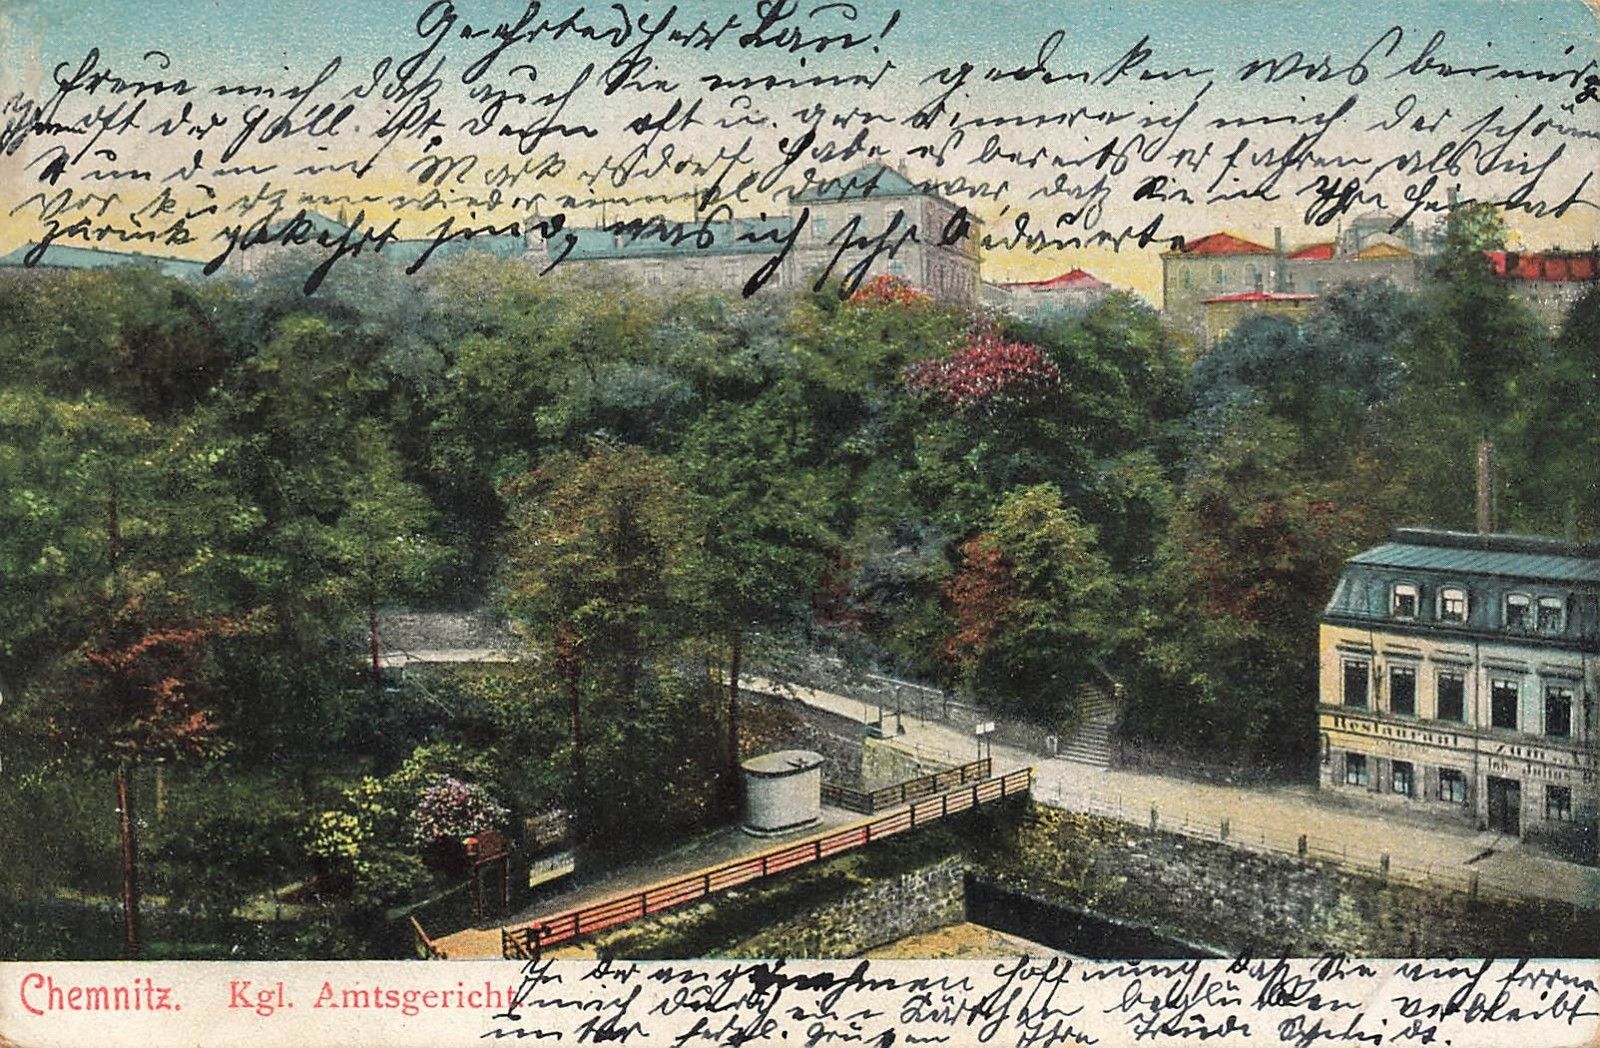 Geehrter Herr Lau!
Freue mich daß auch Sie meiner gedenken, was bei mir
oft der Fall ist, denn oft u. gern erinnere ich mich der schönen
Stunden in Markersdorf. Habe es bereits erfahren, als ich
vor kurzem wieder einmal dort war, daß Sie in Ihre Heimat
zurück gekehrt sind, was ich sehr bedauerte
Restaurant zum
Inh. Julius
In der angenehmen Hoffnung, daß Sie auch ferner
Chemnitz. Kgl. Amtsgericht.
mich durch ein Kärtchen beglücken verbleibt
unter herzl. Grüßen Ihre Trude